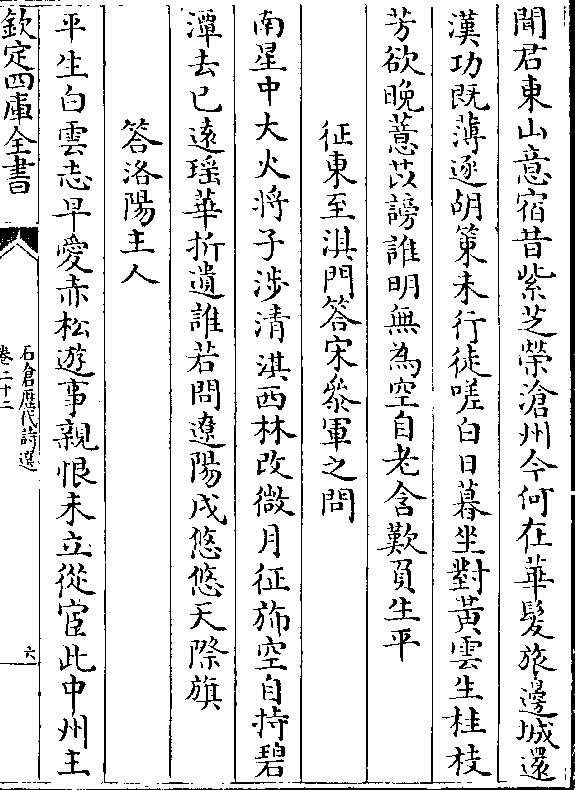 聞君東山意宿昔紫芝榮滄州今何在華髮旅邊城還
漢功既薄逐胡策未行徒嗟白日暮坐對黃雲生桂枝
芳欲晚薏苡謗誰明無為空自老含歎負生平
征東至淇門答宋叅軍之問
南星中大火將子涉清淇西林改微月征斾空自持碧
潭去已遠瑶華折遺誰若問遼陽戍悠悠天際旗
答洛陽主人
平生白雲志早愛赤松遊事親恨未立從宦此中州主
欽定四庫全書
石倉歷代詩選
卷二十二
六